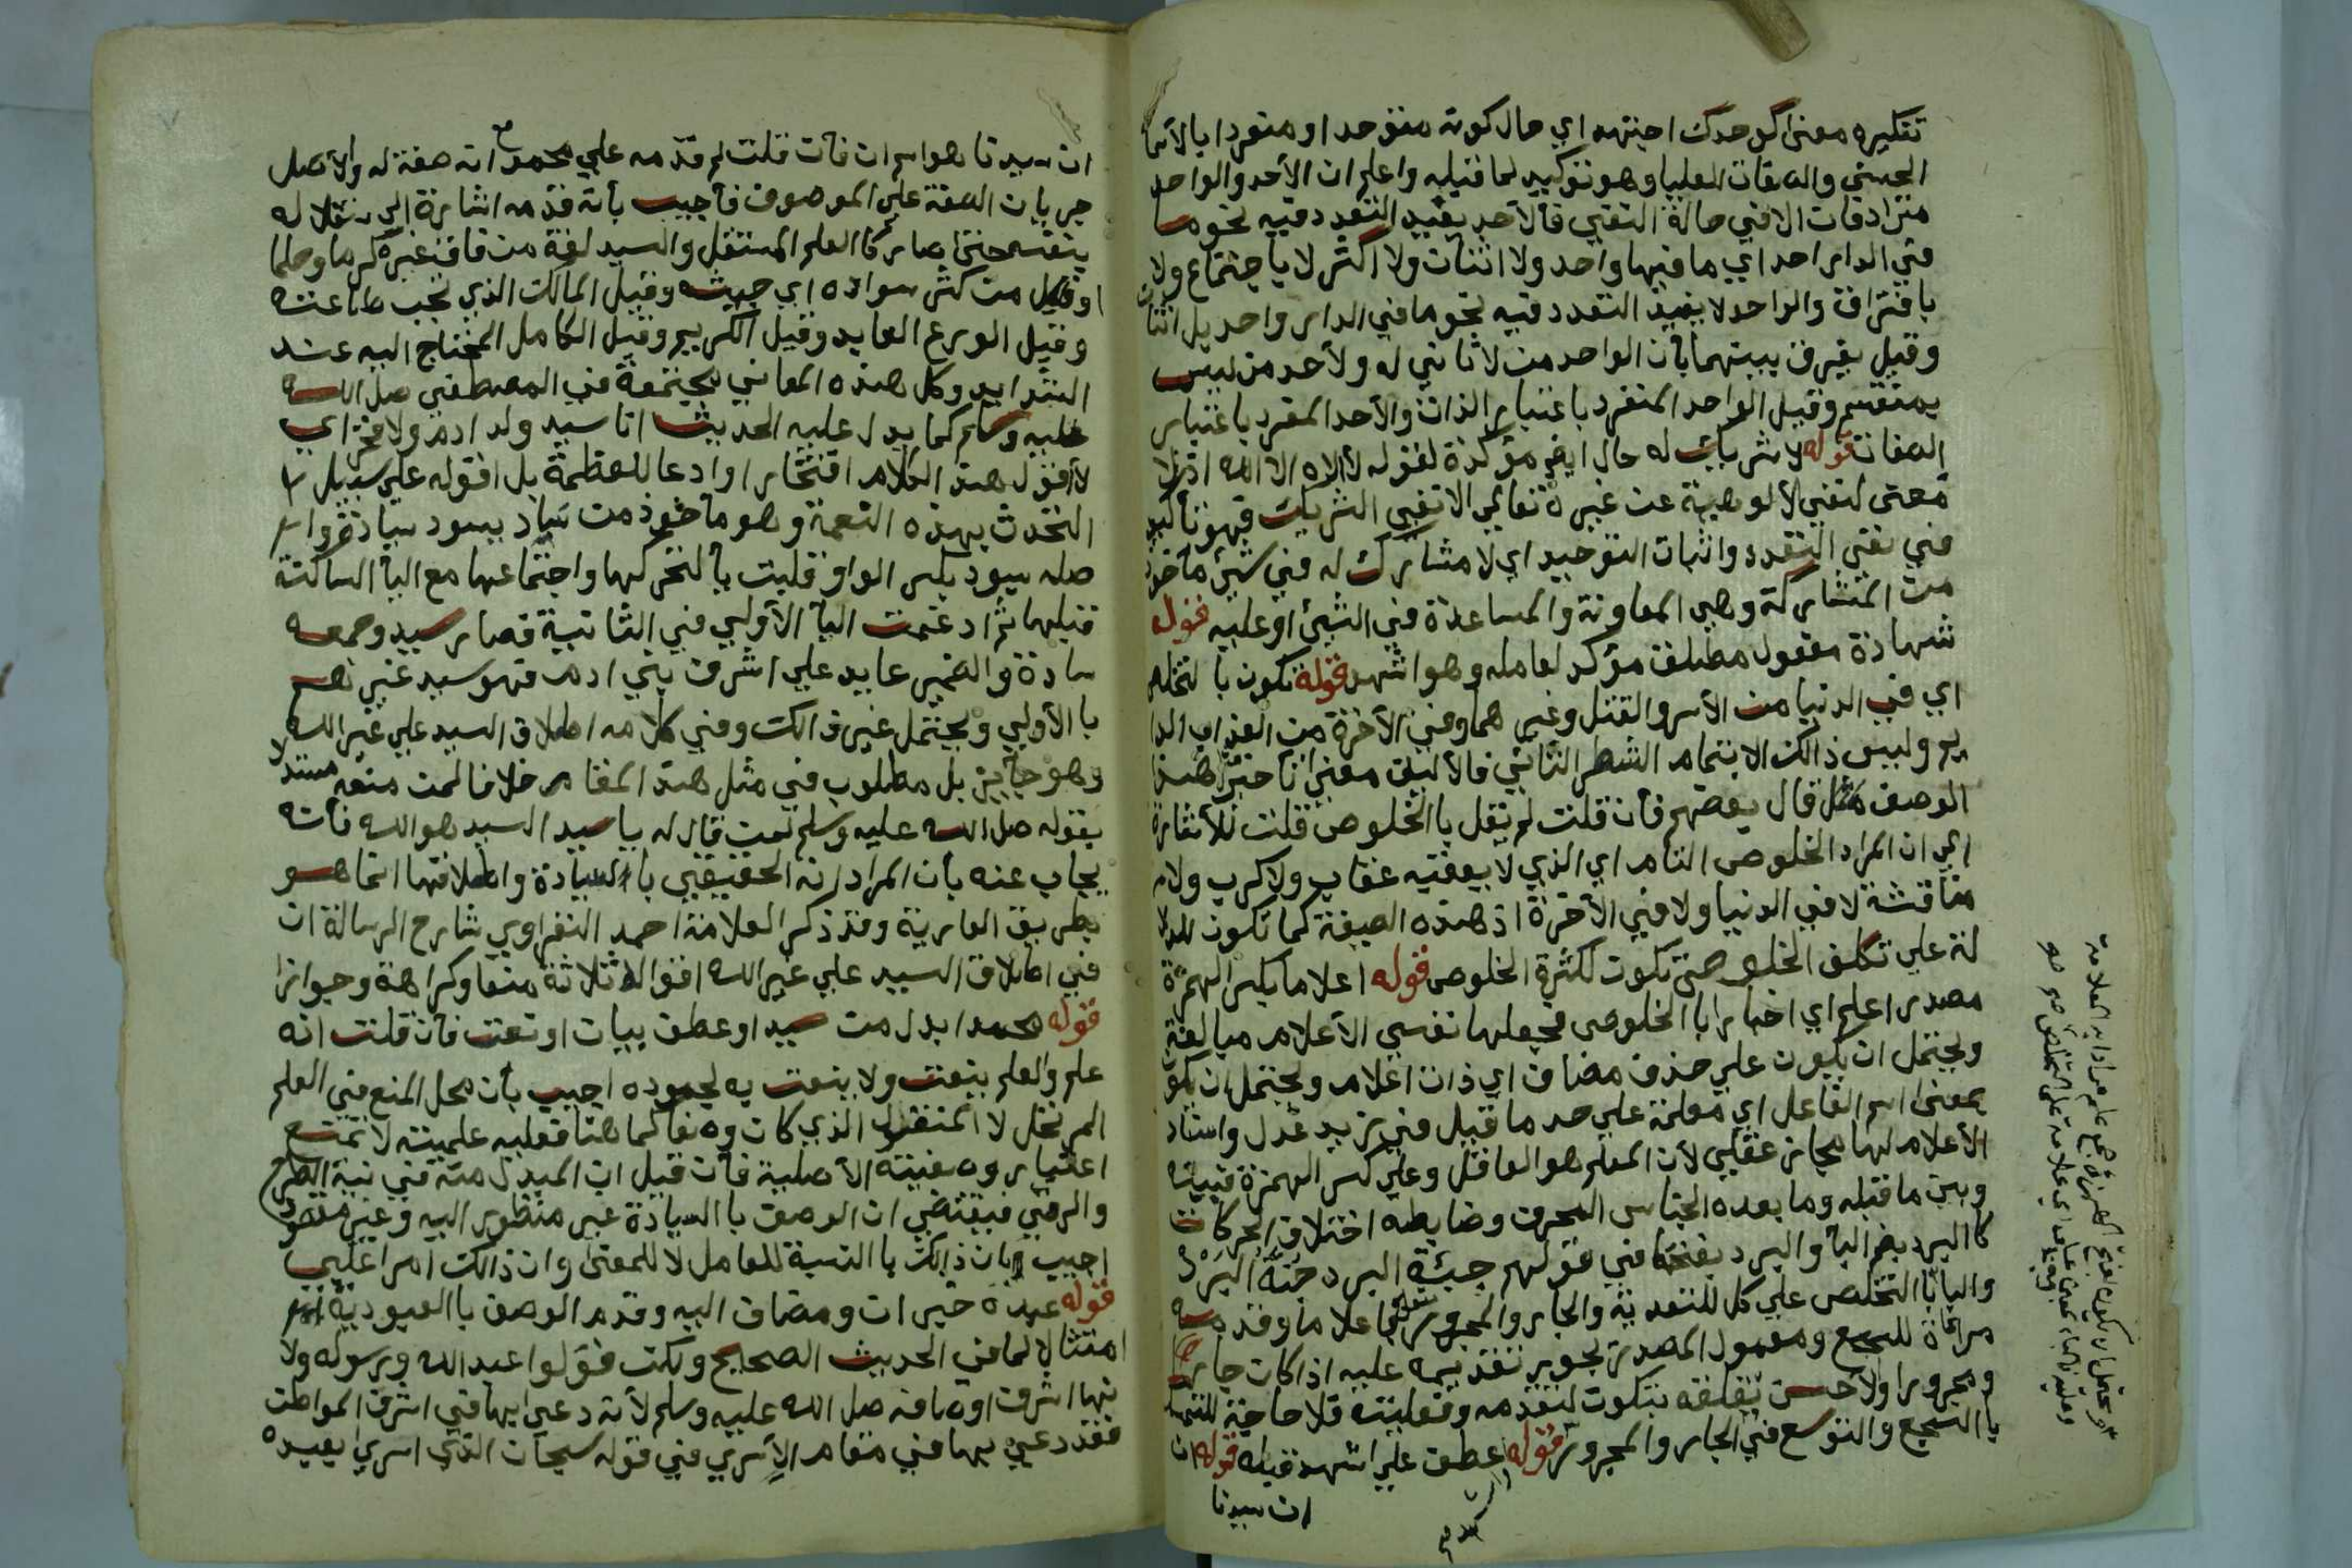 تنكيره معنى كوحدك اجتهد اي حال كونه متوحدا ومتفردا بالأسما
الحسني والصفات العليا وهو توكيد لما قبله واعلم ان الأحد والواحد
مترادفان الا في حالة النفي فالأحد يفيد التعدد فيه نحو ما
في الدار احد اي ما فيها واحد ولا اثنان ولا اكثر لا باجتماع ولا
بافتراق والواحد لا يفيد التعدد فيه نحو ما في الدار واحد بل اثنان
وقيل يفرق بينهما بأن الواحد من لا ثاني له ولأحد من ليس
بمنقسم وقيل الواحد المنفرد باعتبار الذات والأحد المفرد باعتبار
الصفات قوله لا شريك له حال ايض مؤكدة لقوله لا اله الا الله اذ لا
معنى لنفي لألوهية عن غيره تعالي الا نفي الشريك فهو تأكيد
في نفي التعدد واثبات التوحيد اي لا مشارك له في شئ ماخوذ
من المتشاركة وهي المعاونة والمساعدة في الشئ او عليه قوله
شهادة مفعول مطلق مؤكد لعامله وهو اشهد قوله تكون بالتخلص
اي في الدنيا من الأسر والقتل وغيرهما وفي الأخرة من العذاب الدا
يم وليس ذالك الا بتمام الشطر الثاني فالأليق معنى تأخير هذا
الوصف قال بعضهم فأن قلت لم يقل بالخلوص قلت للأشارة
الي ان المراد الخلوص التام اي الذي لا يعقبه عقاب ولا كرب ولا
مناقشة لا في الدنيا ولا في الأخرة اذ هذه الصيغة كما تكون للدلا
لة علي تكلف الخلوص تكون لكثرة الخلوص قوله اعلاما بكسر الهمزة
مصدر اعلم اي اخبارا باالخلوص فجعلها نفسي الأعلام مبالغة
ويحتمل ان يكون علي حذف مضاف اي ذات اعلام ويحتمل ان يكو
بمعنى اسم الفاعل اي معلمة علي حد ما قيل في زيد عدل واسناد
الأعلام لها مجاز عقلي لأن المعلم هو العاقل وعلي كسر الهمزة فبينه
وبين ما قبله وما بعده الجناس المحرف وضابطه اختلاف الحركات
كاالبرد بضم البأ والبرد بفتحها في قولهم جبة البرد جنة البرد
والبأ باالتخلص علي كل للتعدية والجار والمجرور متعلق باعلاما وقدمه
مراعاة للسجع ومعمول المصدر يجوز تقديمه عليه اذا كان جارا
ومجرورا ولأحسن تعلقه بتكون لتقدمه وفعليته فلا حاجة
باالسجع والتوسع في الجار والمجرور قوله عطف علي اشهد قبله قوله ان
ان سيدنا
ان سيدنا هو اسم ان فأن قلت لم قدمه علي محمد مع انه صفة له ولأصل
جريان الصفة علي الموصوف فأجيب بأنه قدمه اشارة الي استقلاله
بنفسه حتى صار كاالعلم المستقل والسيد لغة من فاق غيره كرما وحلما
وقيل من كثر سواده اي جيشه وقيل المالك الذي تجب طاعته
وقيل الورع العابد وقيل الكريم وقيل الكامل المحتاج اليه عند
الشدايد وكل هذه المعاني مجتمعة في المصطفي صل الله
عليه وسلم كما يدل عليه الحديث انا سيد ولد ادم ولا فخر اي
لأقول هذا الكلام افتخارا وادعا للعظمة بل اقوله علي سبيل
التحدث بهذه النعمة وهو ماخوذ من ساد يسود سيادة وا
صله سيود بكسر الواو قلبت يأ لتحركها واجتماعها مع اليأ الساكنة
قبلها ثم ادغمت اليأ الأولي في الثانية فصار سيد وجمعه
سادة والضمير عايد علي اشرف بني ادم فهو سيد غيرهم
باالأولي ويحتمل غير ذالك وفي كلامه اطلاق السيد علي غير الله
وهو جايز بل مطلوب في مثل هذا المقام خلافا لمن منعه مستدلا
بقوله صل الله عليه وسلم لمن قال له يا سيد السيد هو الله فأنه
يجاب عنه بأن المراد انه الحقيقي باالسيادة واطلاقها انما هو
بطريق العارية وقد ذكر العلامة احمد النفراوي شارح الرسالة ان
في اطلاق السيد علي غير الله اقوالا ثلاثة منعا وكراهة وجوازا
قوله محمدا بدل من سيد او عطف بيان او نعت فأن قلت انه
علم والعلم ينعت ولا ينعت به لجموده اجيب بأن محل المنع في العلم
المرتجل لا المنقول الذي كان وصفا كما هنا فعليه علميته لا تمنع
اعتبار وصفيته الأصلية فأن قيل ان المبدل منه في نية الطرح
والرمي فيقتضي ان الوصف باالسيادة غير منظور اليه وغير مقصود
اجيب بان ذالك باالنسبة للعامل لا للمعنى وان ذالك امر اغلبي
قوله عبده خبر ان ومضاف اليه وقدم الوصف باالعبودية
امتثالا لما في الحديث الصحيح ولكن قولوا عبد الله ورسوله ولا
نها اشرف اوصافه صل الله عليه وسلم لأنه دعي بها في اشرف المواطن
فقد دعي بها في مقام الإسري في قوله سبحان الذي اسري بعبده